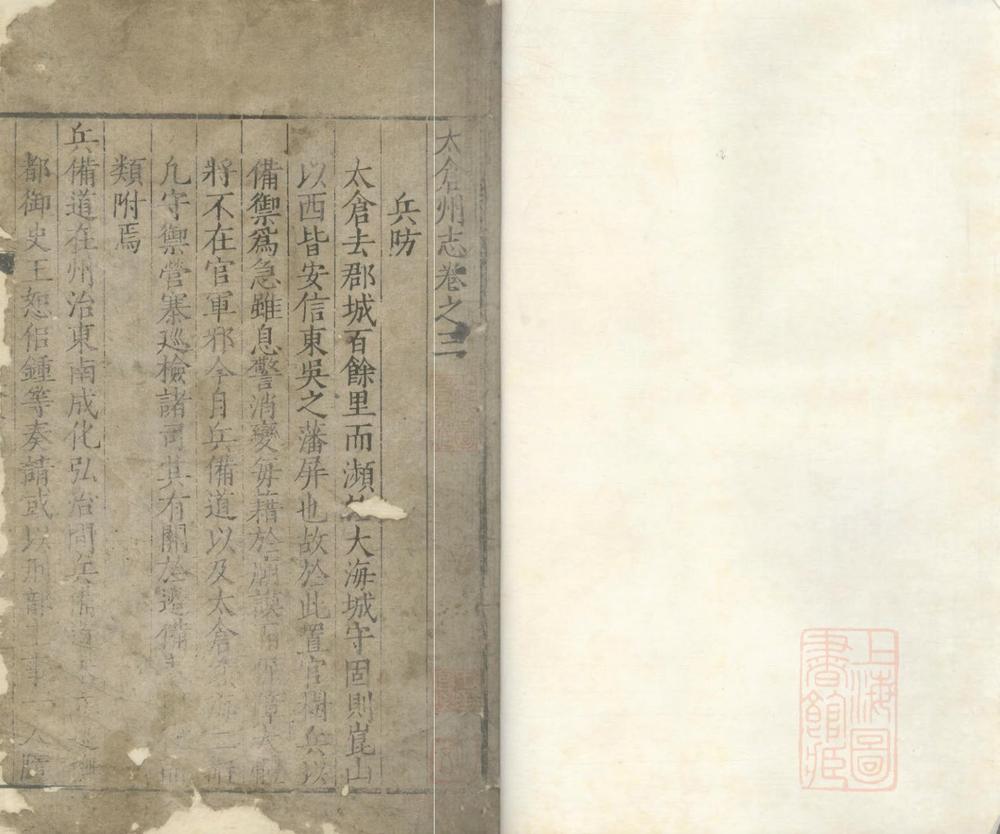 上海圖
書館藏
太倉州志卷之三
兵防
太倉去郡城百餘里而瀕大海城守固則崑山
以西皆安信東吳之藩屏也故於此置官樹兵以
備禦爲急雖息警消變每藉於
將不在官軍邪今自兵備道以及太倉海二
凡守禦營寨廵檢諸司其有關於邊備
類附焉
兵備道在州治東南成化弘治間兵備道
都御史王恕侶鍾等奏請或以刑部事一人